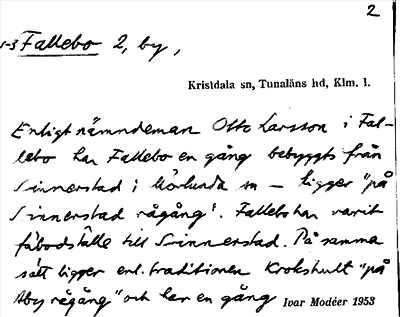 2
1-3 Fallebo 2, by,
Kristdala sn, Tunaläns hd, Klm. l.
Enligt nämndeman Otto Larsson i Fal-
lebo har Fallebo en gång bebyggts från
Sinnerstad i Mörlunda sn – ligger "på
Sinnerstad rågång". Fallebo har varit
fäbodställe till Sinnerstad. På samma
sätt ligger enl. traditionen Krokshult "på
Aby rågång" och har en gång
Ivar Modéer 1953